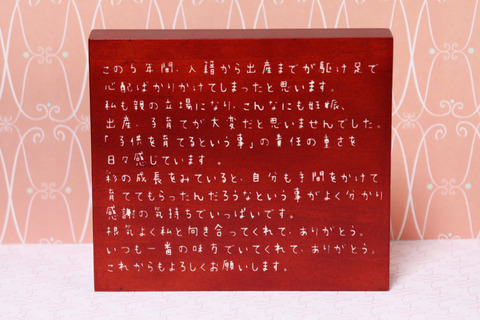 この5年間、入籍から出産までが駆け足で
心配ばかりかけてしまったと思います。
私も親の立場になり、こんなにも妊娠、
出産、子育てが大変だと思いませんでした。
「子供を育てるという事」の責任の重さを
日々感じています。
彩の成長をみていると、自分も手間をかけて
育ててもらったんだろうなという事がよく分かり
感謝の気持ちでいっぱいです。
根気よく私と向き合ってくれて、ありがとう。
いつも一番の味方でいてくれて、ありがとう。
これからもよろしくお願いします。